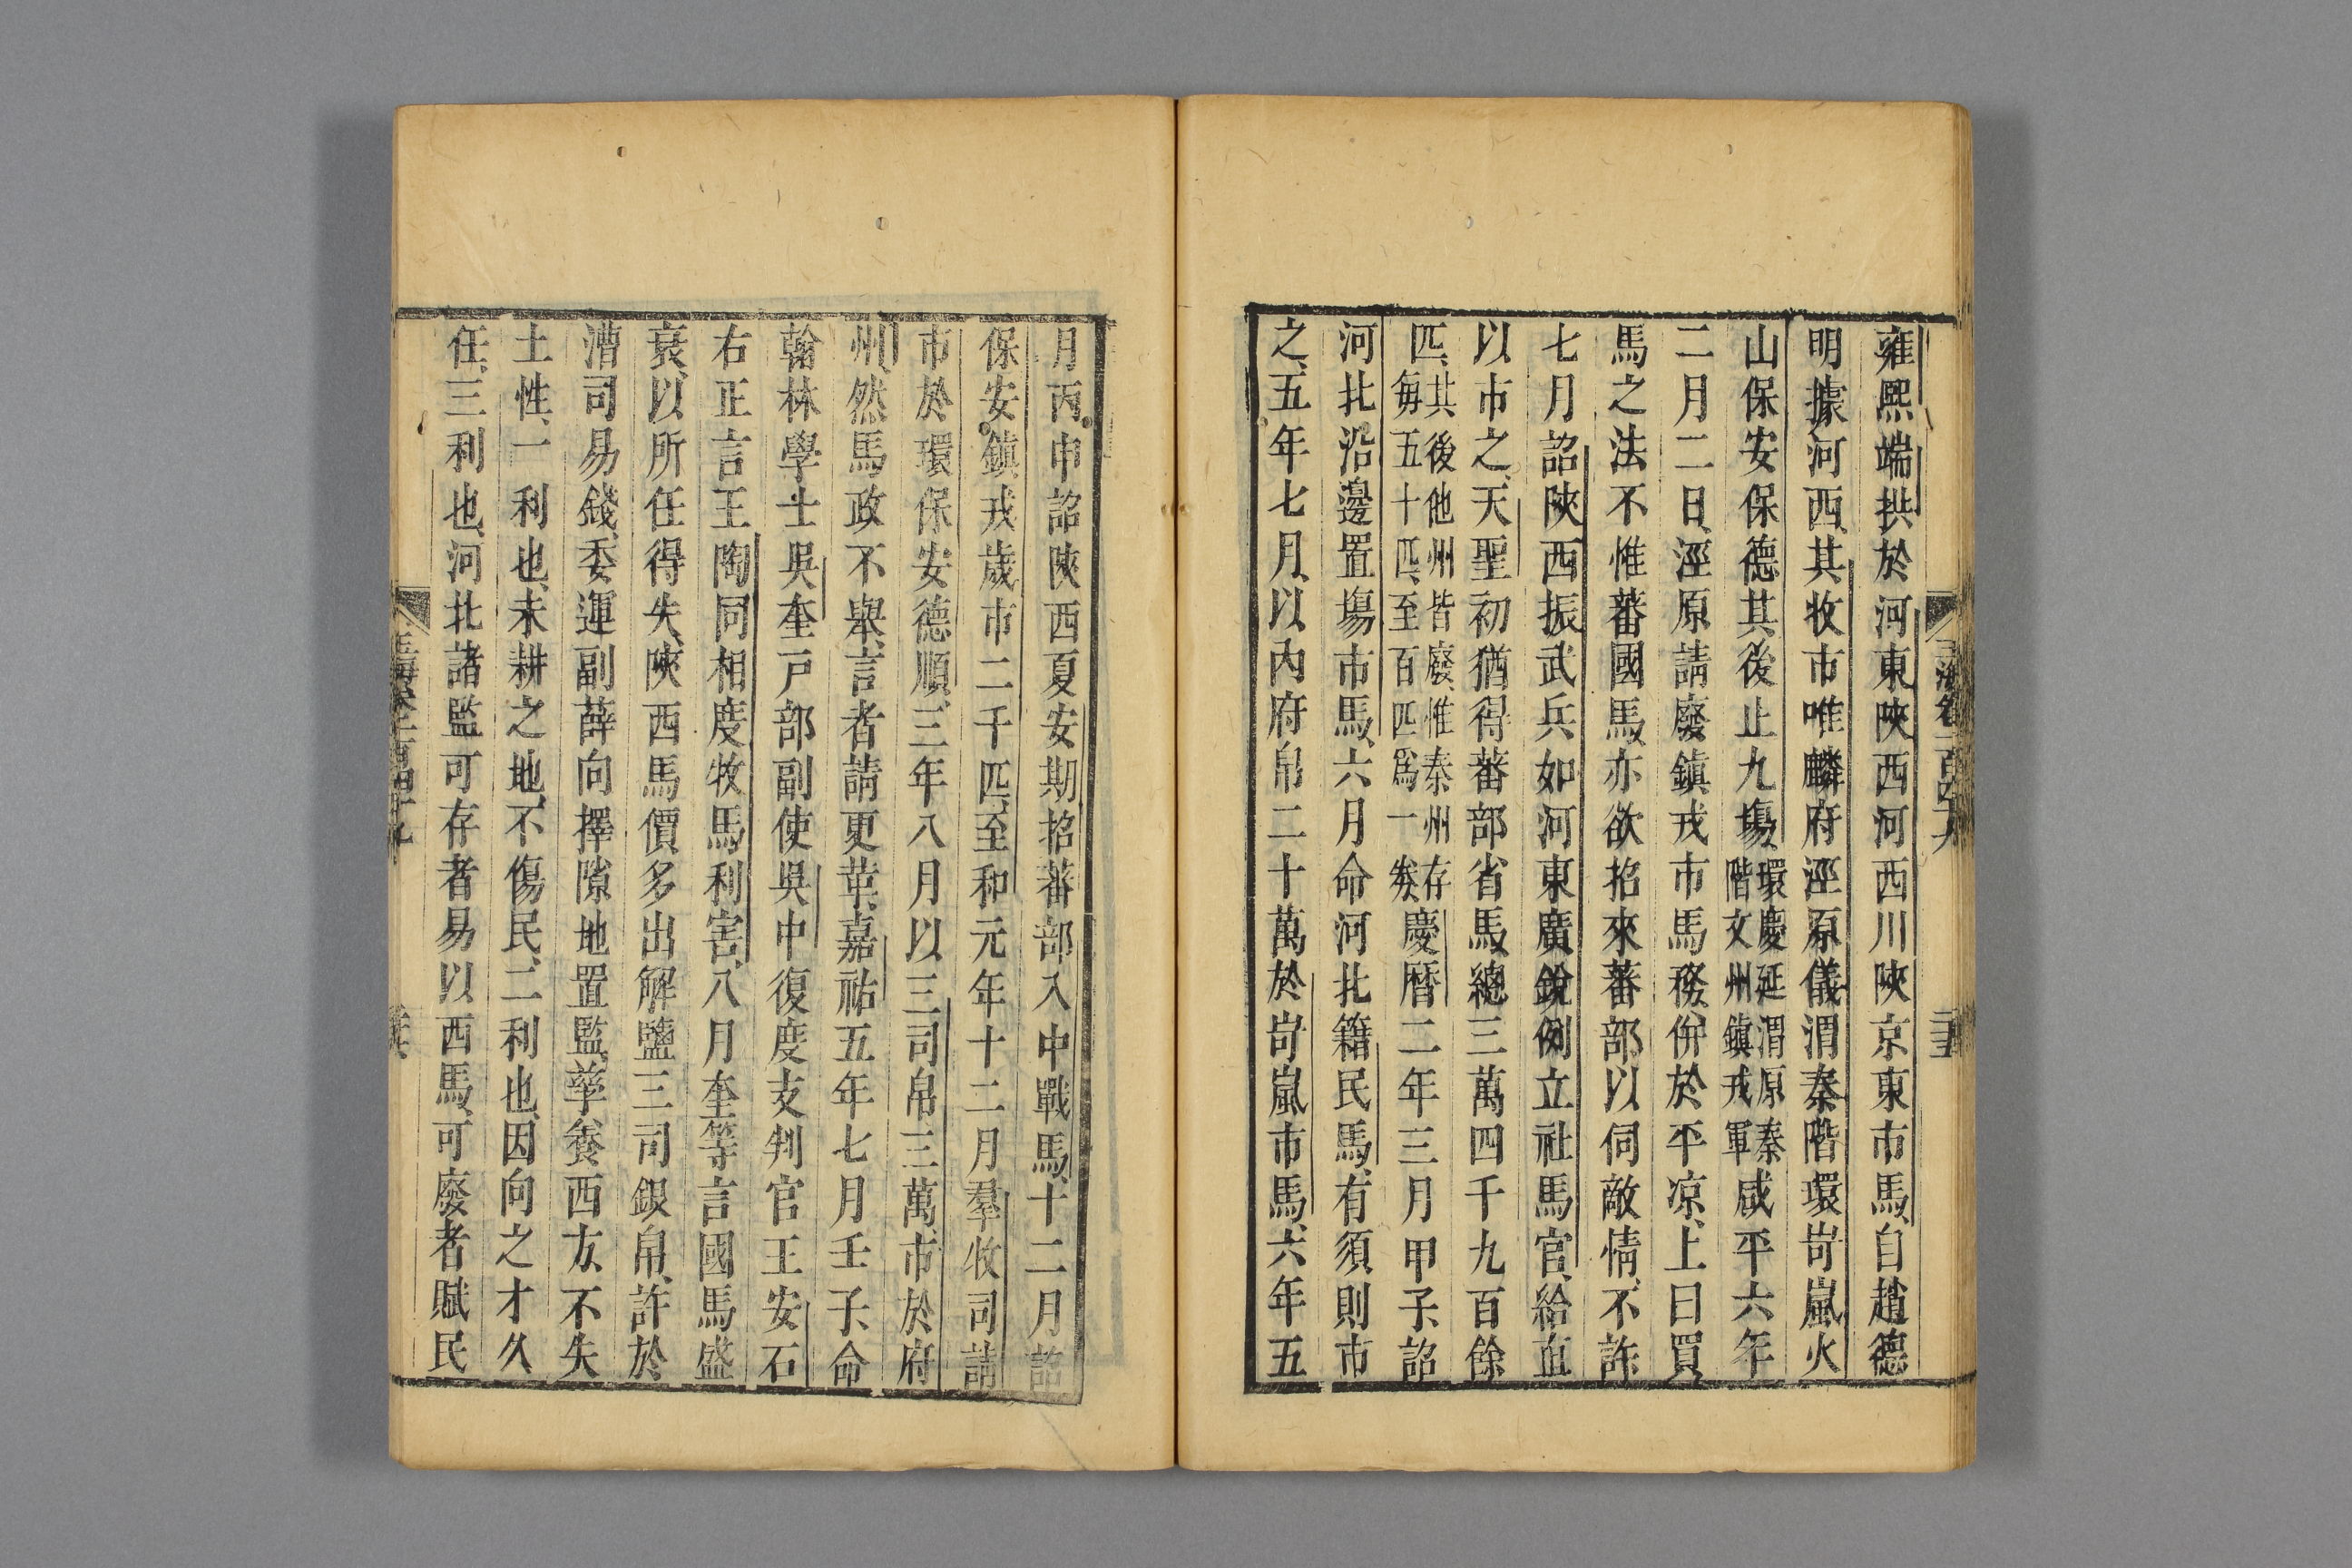 雍熙端拱於河東陝西河西川陝京東市馬自趙德
明據河西其牧市唯麟府涇原儀渭秦階環岢嵐火
山保安保德其後止九場環慶延渭原秦階文州鎮戎軍咸平六年
二月二日涇原請廢鎮戎市馬務併於平凉上曰買
馬之法不惟蕃國馬亦欲招來蕃部以伺敵情不許
七月詔陝西振武兵如河東廣銳例立社馬官給直
以市之天聖初猶得蕃部省馬總三萬四千九百餘
匹其後他州皆廢惟秦州存每五十匹至百匹爲一券慶曆二年三月甲子詔
河北沿邊置塲市馬六月命河北籍民馬有須則市
之五年七月以內府帛二十萬於岢嵐市馬六年五
月丙申詔陝西夏安期招蕃部入中戰馬十二月詔
保安鎮戎歲市二千匹至和元年十二月羣牧司請
市於環保安德順三年八月以三司帛三萬市於府
州然馬政不舉言者請更革嘉祐五年七月壬子命
翰林學士吳奎戸部副使吳中復度支判官王安石
右正言王陶同相度牧馬利害八月奎等言國馬盛
衰以所任得失陝西馬價多出解鹽三司銀帛許於
漕司易錢委運副薛向擇隙地置監孳養西方不失
土性一利也未耕之地不傷民二利也因向之才久
任三利也河北諸監可存者易以西馬可廢者賦民
玉海卷一百四十九